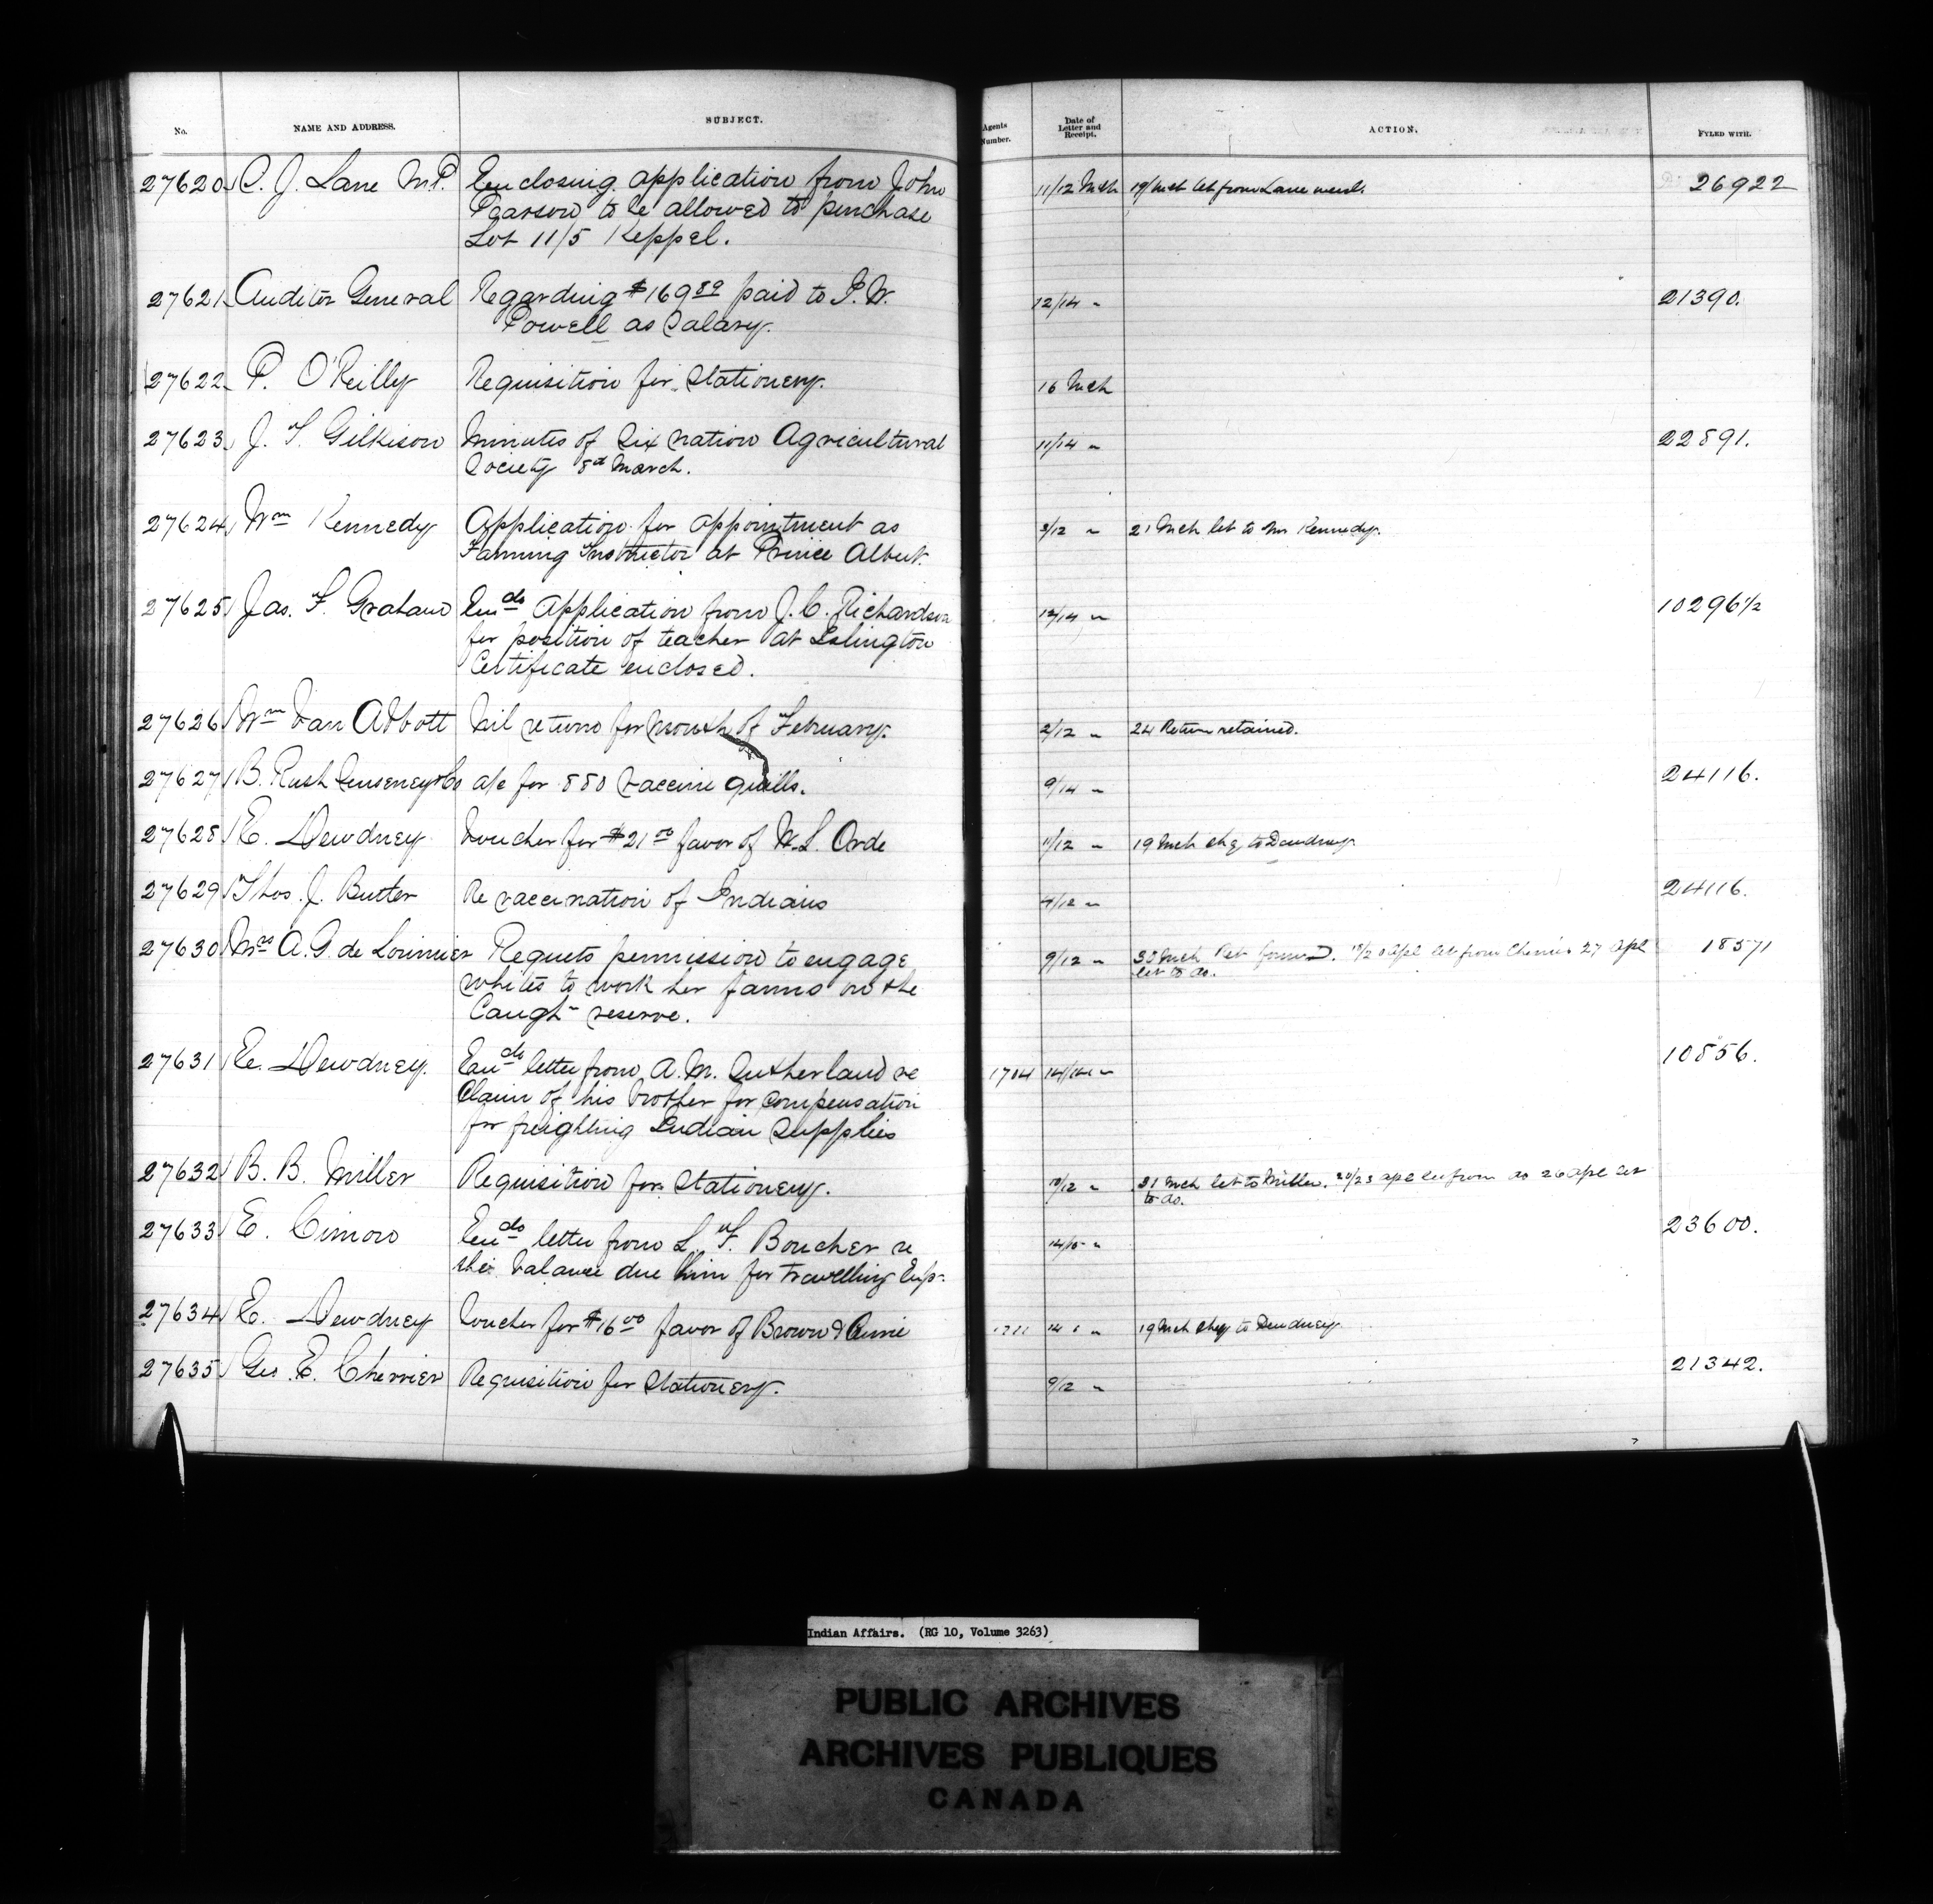 No. NAME AND ADDRESS. SUBJECT. Agents Number. Date of Letter and Receipt. ACTION. FYLED WITH.
27620 C. J. Lane M.P. Enclosing application from John 11/12 Mch 19/Mch let from Lane 26922
Pearson to be allowed to purchase
Lot 11/5 Keppel.
27621 Auditor General Regarding $169 89 paid to I. W. 12/14 " 21390.
Powell as Salary.
27622 P. O'Reilly Requisition for Stationery. 16 Mch
27623 J. T. Gilkison Minutes of Six nation Agricultural 11/14 " 22891.
Society 8th March.
27624 Wm Kennedy Application for appointment as 8/12 " 21 Mch let to Mr Kennedy.
Farming Instructor at Prince Albert.
27625 Jas. F. Graham Encds Application from J. C. Richardson 12/14 " 10296 1/2
for position of teacher at Islington
Certificate enclosed.
27626 Wm Van Abbott Nil return for month of February. 2/12 " 24 Return retained.
27627 B. Rush Senseney & Co a/c for 880 Vaccine quills. 9/14 " 24116.
27628 E. Dewdney Voucher for $21 00 favor of W. L. Orde 11/12 " 19 Mch chq to Dewdney
27629 Thos. J. Butler Re vaccination of Indians 9/12 " 24116.
27630 Mrs A. G. de Lorimier Requets permission to engage 9/12 " 30 Mch Ret 18/20 Apl let from Cherrier 27 Apl 18571
let to do.
whites to work her farms on the
Caugh- reserve.
27631 E. Dewdney. Encds letter from A. M. Sutherland re 1704 14/14 " 10856.
Claim of his brother for compensation
for freighting Indian Supplies
27632 B. B. Miller Requisition for Stationery. 10/12 " 21 Mch let to Miller. 20/23 apl let from do 26 Apl let
to do.
27633 E. Cimon Encds letter from L. F. Boucher re 14/15 " 23600.
the balance due him for travelling Exp-
27634 E. Dewdney Voucher for $16 00 favor of Brown & Currie 14 " 19 Mch chq to Dewdney
27635 Geo. E. Cherrier Requisition for Stationery. 9/12 " 21342.
Indian Affairs. (RG 10, Volume 3263)
PUBLIC ARCHIVES
ARCHIVES PUBLIQUES
CANADA